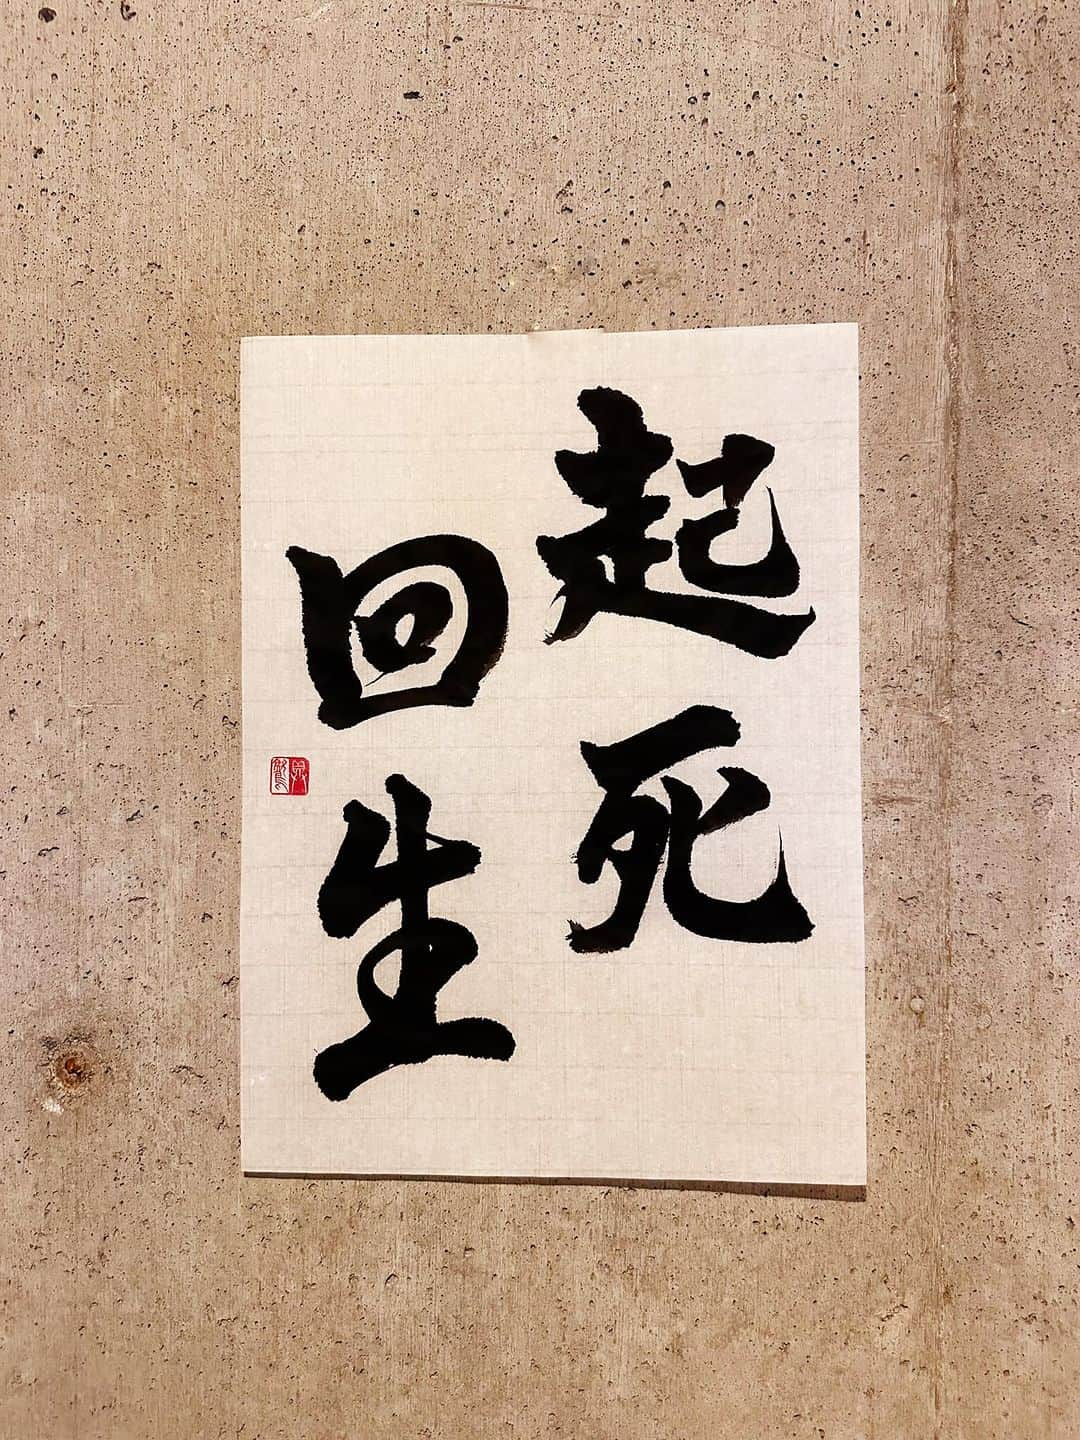 起死
回生